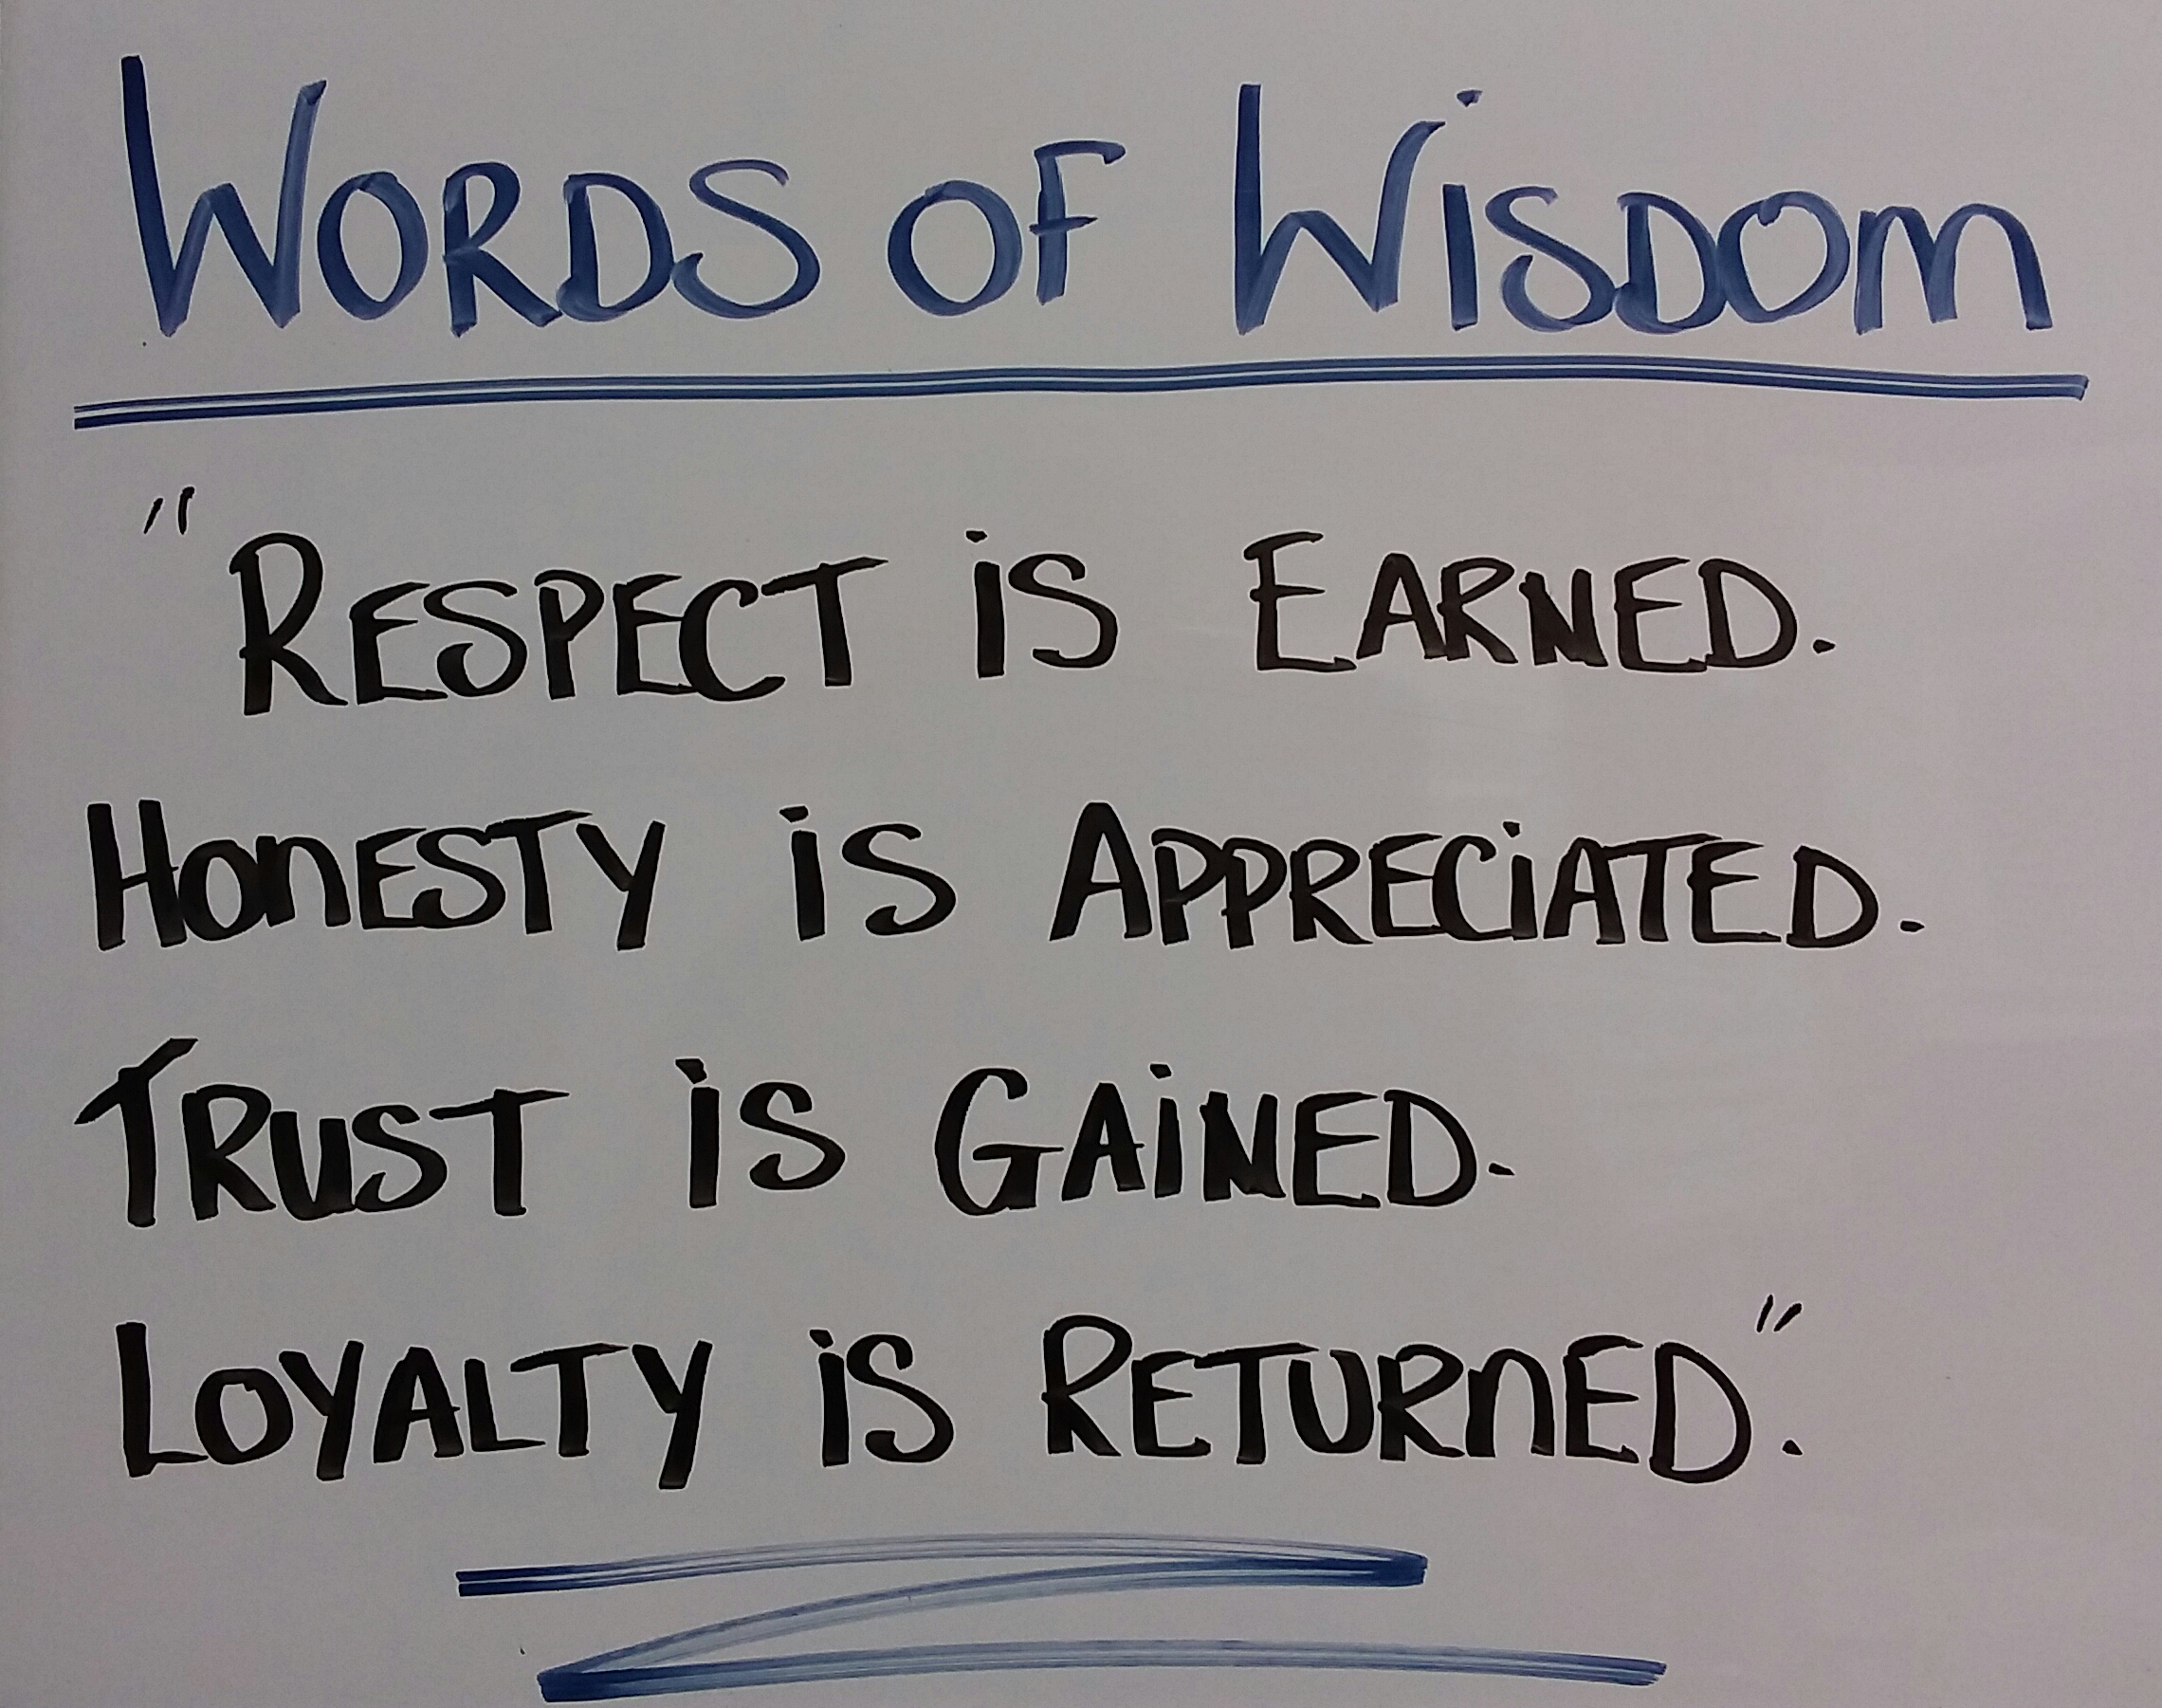 WORDS OF WISDOM
"RESPECT iS EARNED.
HonESTY iS APPRECiATED.
TRUST iS GAiNED.
LOYALTY iS RETURnED."